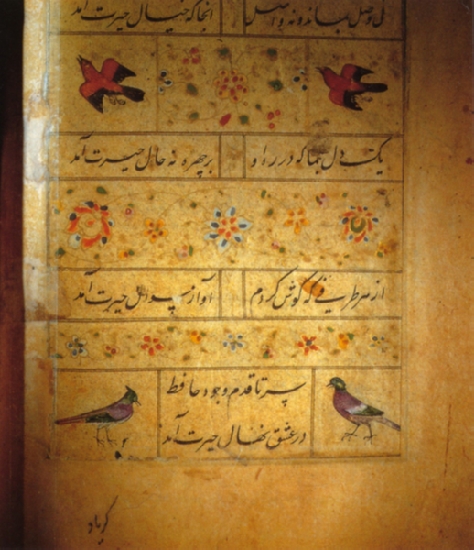 نی وصل بماند و نه واصل آنجا که خیال حیرت آمد
یک دل بنما که در ره او بر چهره نه خال حیرت آمد
از هر طرفی که گوش کردم آواز سوال حیرت آمد
سر تا قدم وجود حافظ
در عشق نهال حیرت آمد